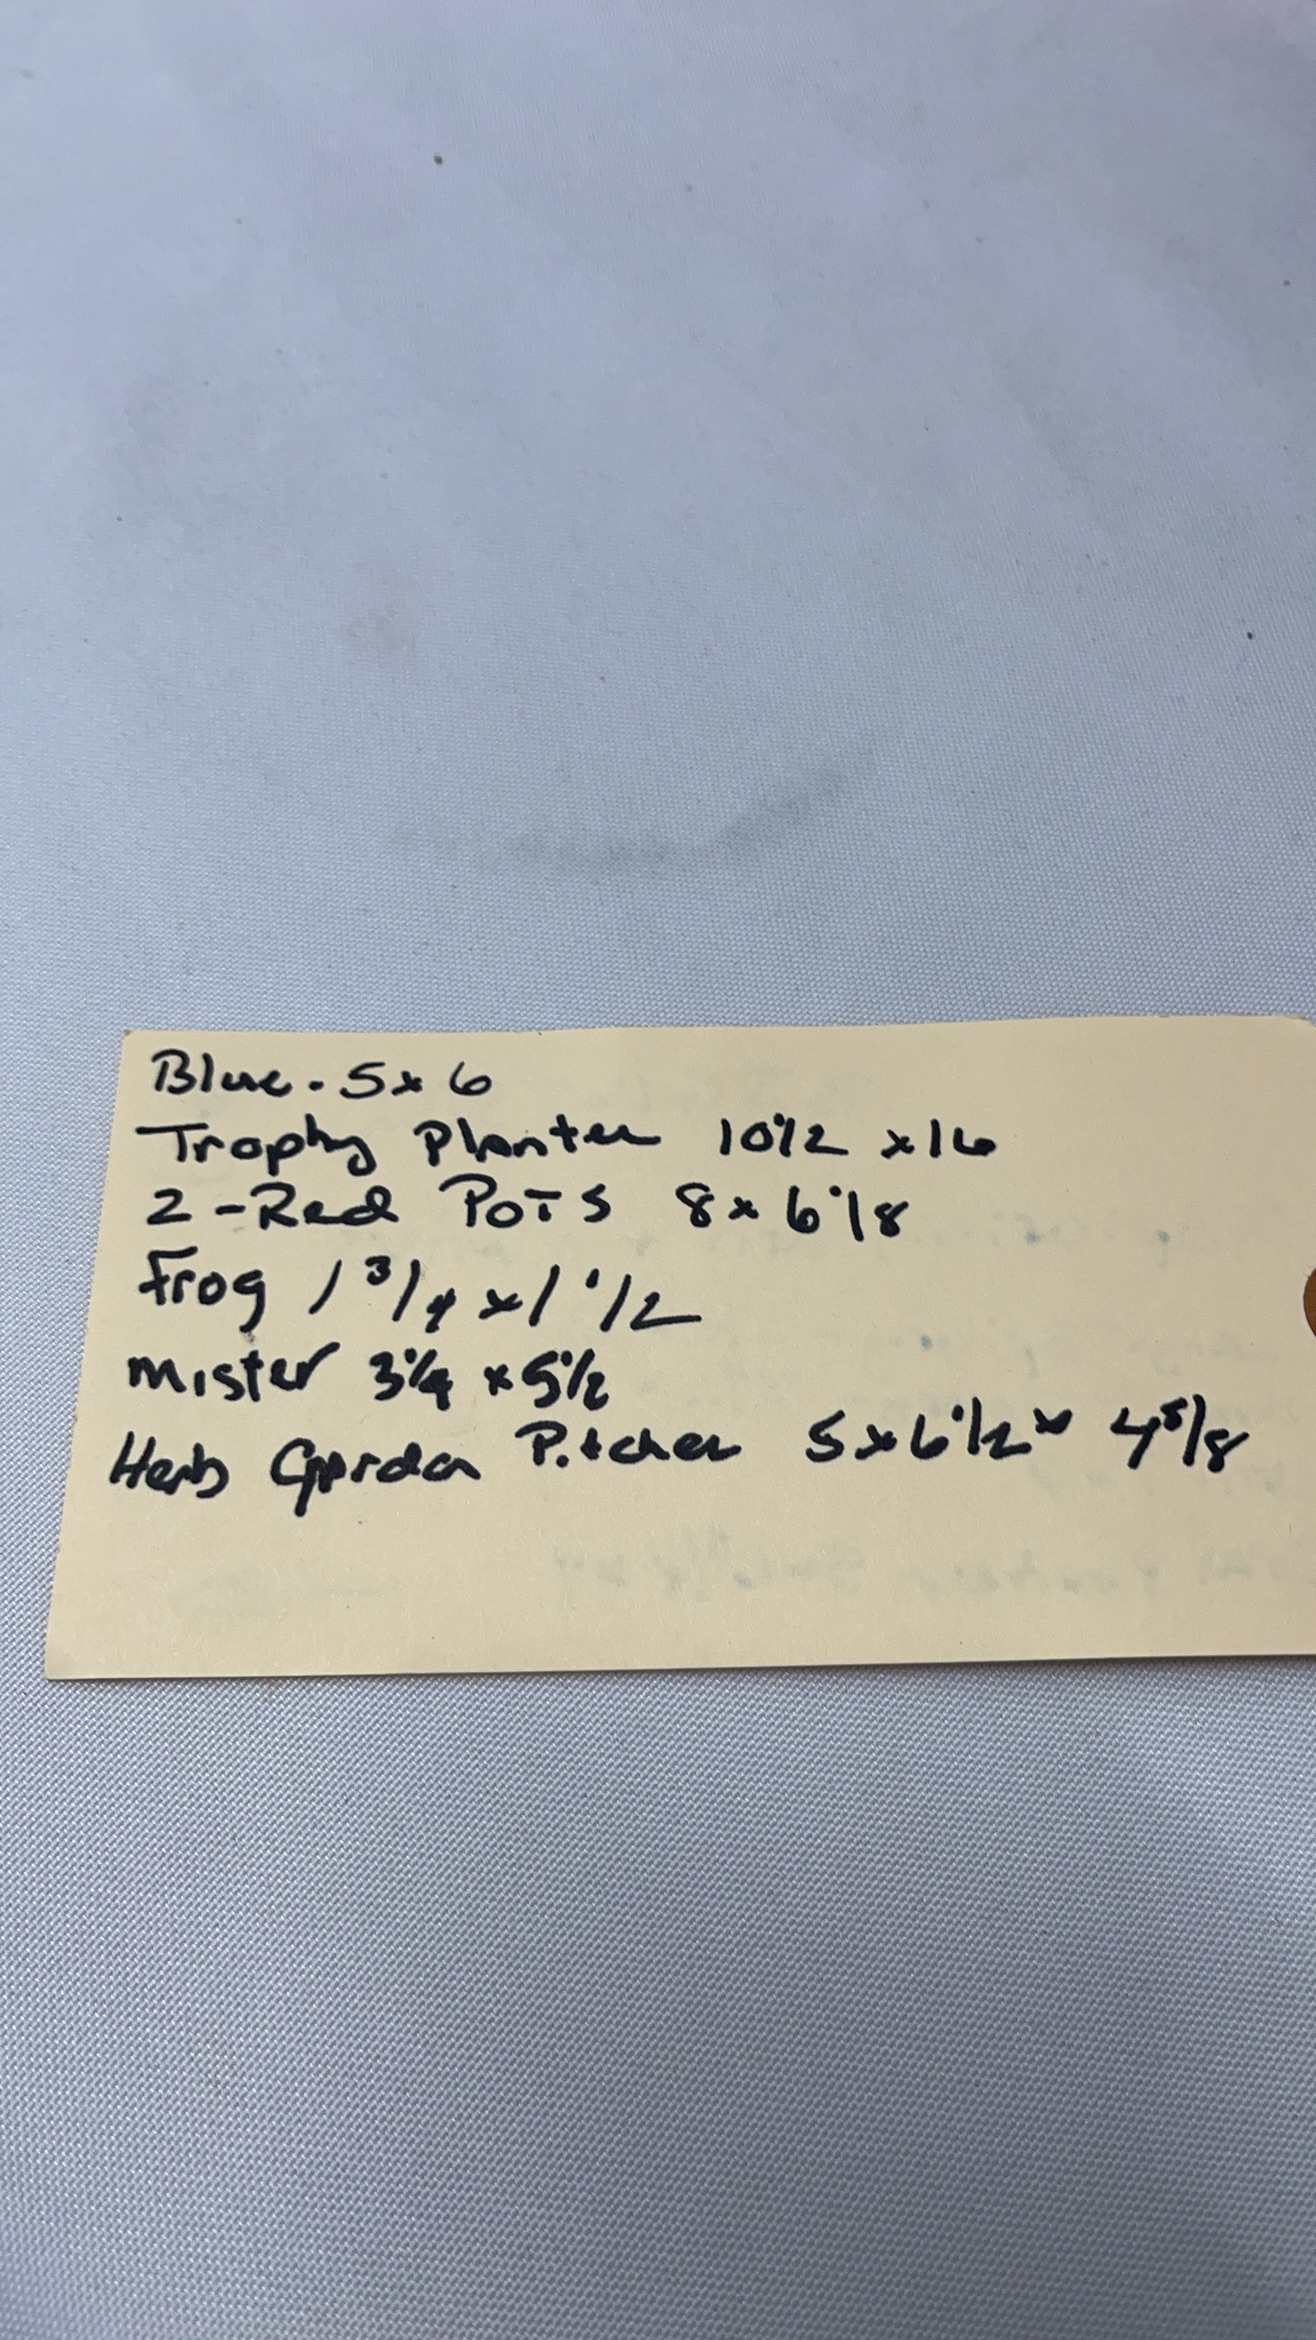 Blue - 5 x 6
Trophy Planter 10 1/2 x 16
2 - Red Pots 8 x 6 1/8
Frog 1 3/4 x 1 1/2
Mister 3 1/4 x 5 1/2
Herb Garden Pitcher 5 x 6 1/2 x 4 5/8